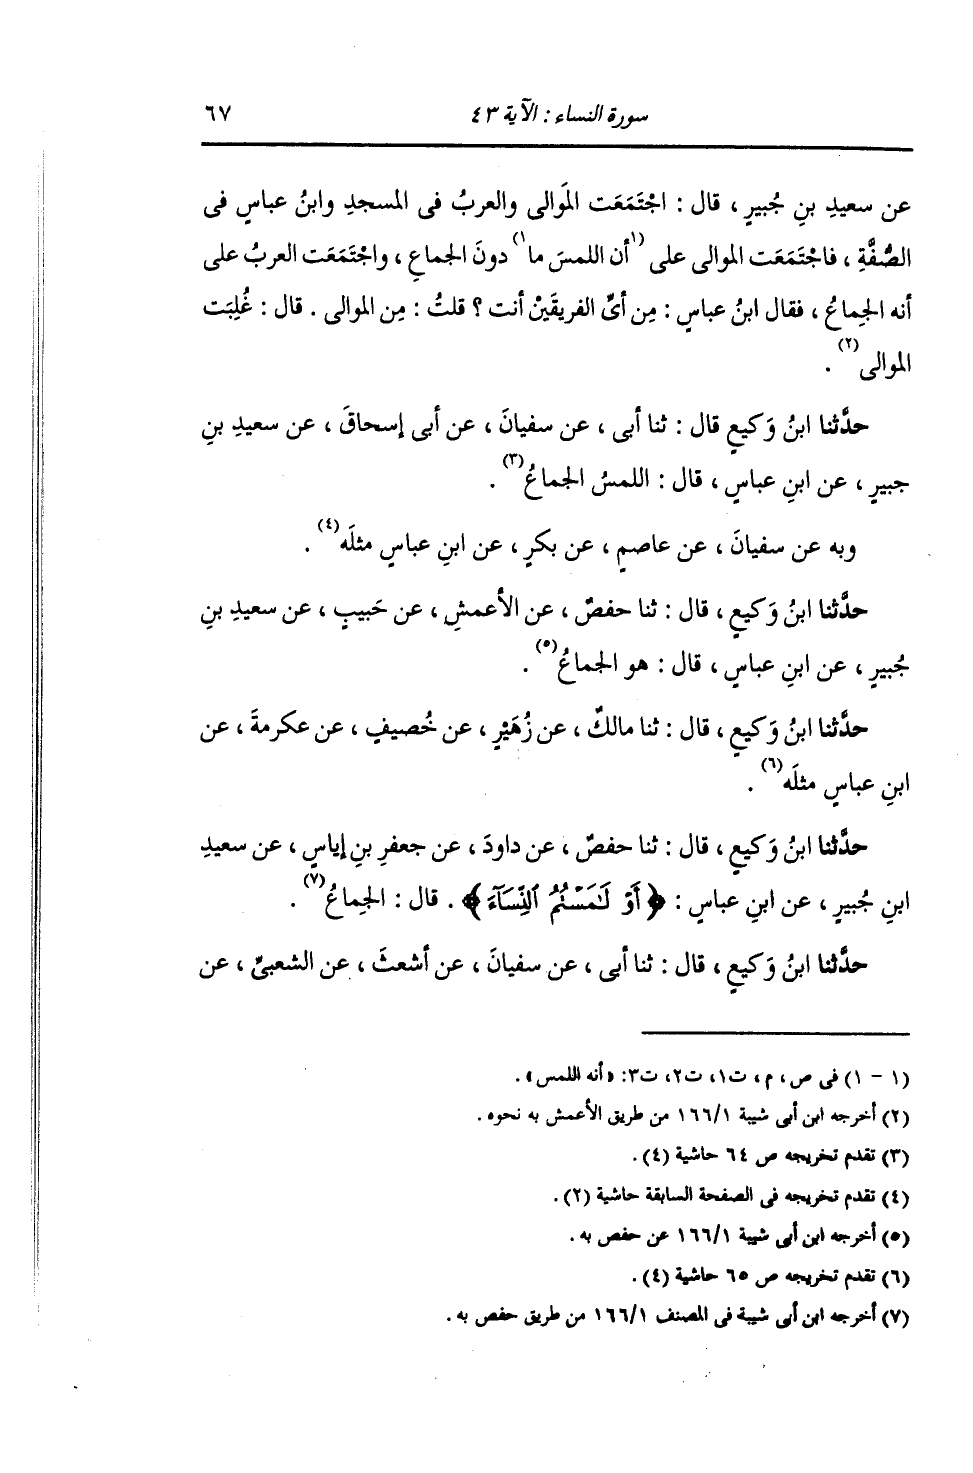 سورة النساء : الآية ٤٣ ٦٧
عن سعيدِ بنِ جُبيرٍ ، قال : اجْتَمَعَت المَوالى والعربُ فى المسجدِ وابنُ عباسٍ فى
الصُّفَّةِ ، فاجْتَمَعَت الموالى على (١أن اللمسَ ما١) دونَ الجماعِ ، واجْتَمَعَت العربُ على
أنه الجِماعُ ، فقال ابنُ عباسٍ : مِن أىِّ الفريقَيْن أنت ؟ قلتُ : مِن الموالى . قال : غُلِبَت
الموالى(٢) .
حدَّثنا ابنُ وَكيعٍ قال : ثنا أبى ، عن سفيانَ ، عن أبى إسحاقَ ، عن سعيدِ بنِ
جبيرٍ ، عن ابنِ عباسٍ ، قال : اللمسُ الجماعُ(٣) .
وبه عن سفيانَ ، عن عاصمٍ ، عن بكرٍ ، عن ابنِ عباسٍ مثلَه(٤) .
حدَّثنا ابنُ وَكيعٍ ، قال : ثنا حفصٌ ، عن الأعمشِ ، عن حَبيبٍ ، عن سعيدِ بنِ
جُبيرٍ ، عن ابنِ عباسٍ ، قال : هو الجماعُ(٥) .
حدَّثنا ابنُ وَكيعٍ ، قال : ثنا مالكٌ ، عن زُهَيْرٍ ، عن خُصيفٍ ، عن عكرمةَ ، عن
ابنِ عباسٍ مثلَه(٦) .
حدَّثنا ابنُ وَكيعٍ ، قال : ثنا حفصٌ ، عن داودَ ، عن جعفرِ بنِ إياسٍ ، عن سعيدِ
ابنِ جُبيرٍ ، عن ابنِ عباسٍ : ﴿ أَوْ لَٰمَسْتُمُ ٱلنِّسَآءَ ﴾ . قال : الجِماعُ(٧) .
حدَّثنا ابنُ وَكيعٍ ، قال : ثنا أبى ، عن سفيانَ ، عن أشعثَ ، عن الشعبىِّ ، عن
(١ - ١) فى ص، م، ت١، ت٢، ت٣: «أنه اللمس» .
(٢) أخرجه ابن أبى شيبة ١٦٦/١ من طريق الأعمش به نحوه .
(٣) تقدم تخريجه ص ٦٤ حاشية (٤) .
(٤) تقدم تخريجه فى الصفحة السابقة حاشية (٢) .
(٥) أخرجه ابن أبى شيبة ١٦٦/١ عن حفص به .
(٦) تقدم تخريجه ص ٦٥ حاشية (٤) .
(٧) أخرجه ابن أبى شيبة فى المصنف ١٦٦/١ من طريق حفص به .